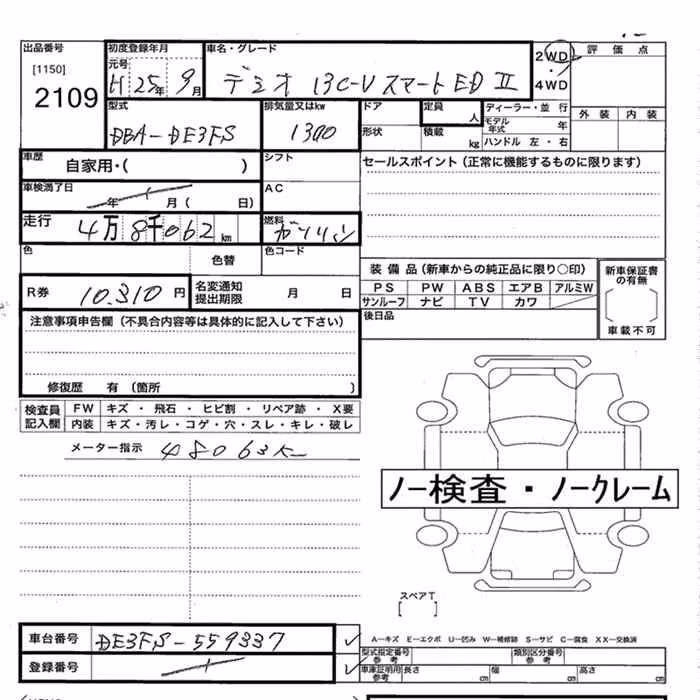 出品番号 初度登録年月 車名・グレード 2WD 評価点
[1150] 元号 4WD
2109 H25年9月 デミオ 13C-V スマートED II
型式 排気量又はkw ドア 定員 人 ディーラー・並行 外装 内装
DBA-DE3FS 1300 形状 積載 kg モデル年式 年
ハンドル 左・右
車歴 自家用・( ) シフト セールスポイント(正常に機能するものに限ります)
車検満了日 年 月( 日) AC
走行 4万8千062km 燃料 ガソリン
色 色替 色コード
装備品(新車からの純正品に限り○印) 新車保証書の有無
R券 10,310円 名変通知提出期限 月 日 PS PW ABS エアB アルミW
サンルーフ ナビ TV カワ
注意事項申告欄(不具合内容等は具体的に記入して下さい) 後日品 車載不可
修復歴 有(箇所 )
検査員記入欄 FW キズ・飛石・ヒビ割・リペア跡・X要
内装 キズ・汚レ・コゲ・穴・スレ・キレ・破レ
メーター指示 48063K
ノー検査・ノークレーム
スペアT
[ ]
車台番号 DE3FS-559337 A―キズ E―エクボ U―凹み W―補修跡 S―サビ C―腐食 XX―交換済
型式指定番号 参考 類別区分番号 参考
登録番号 車庫証明用 参考 長さ cm 幅 cm 高さ cm